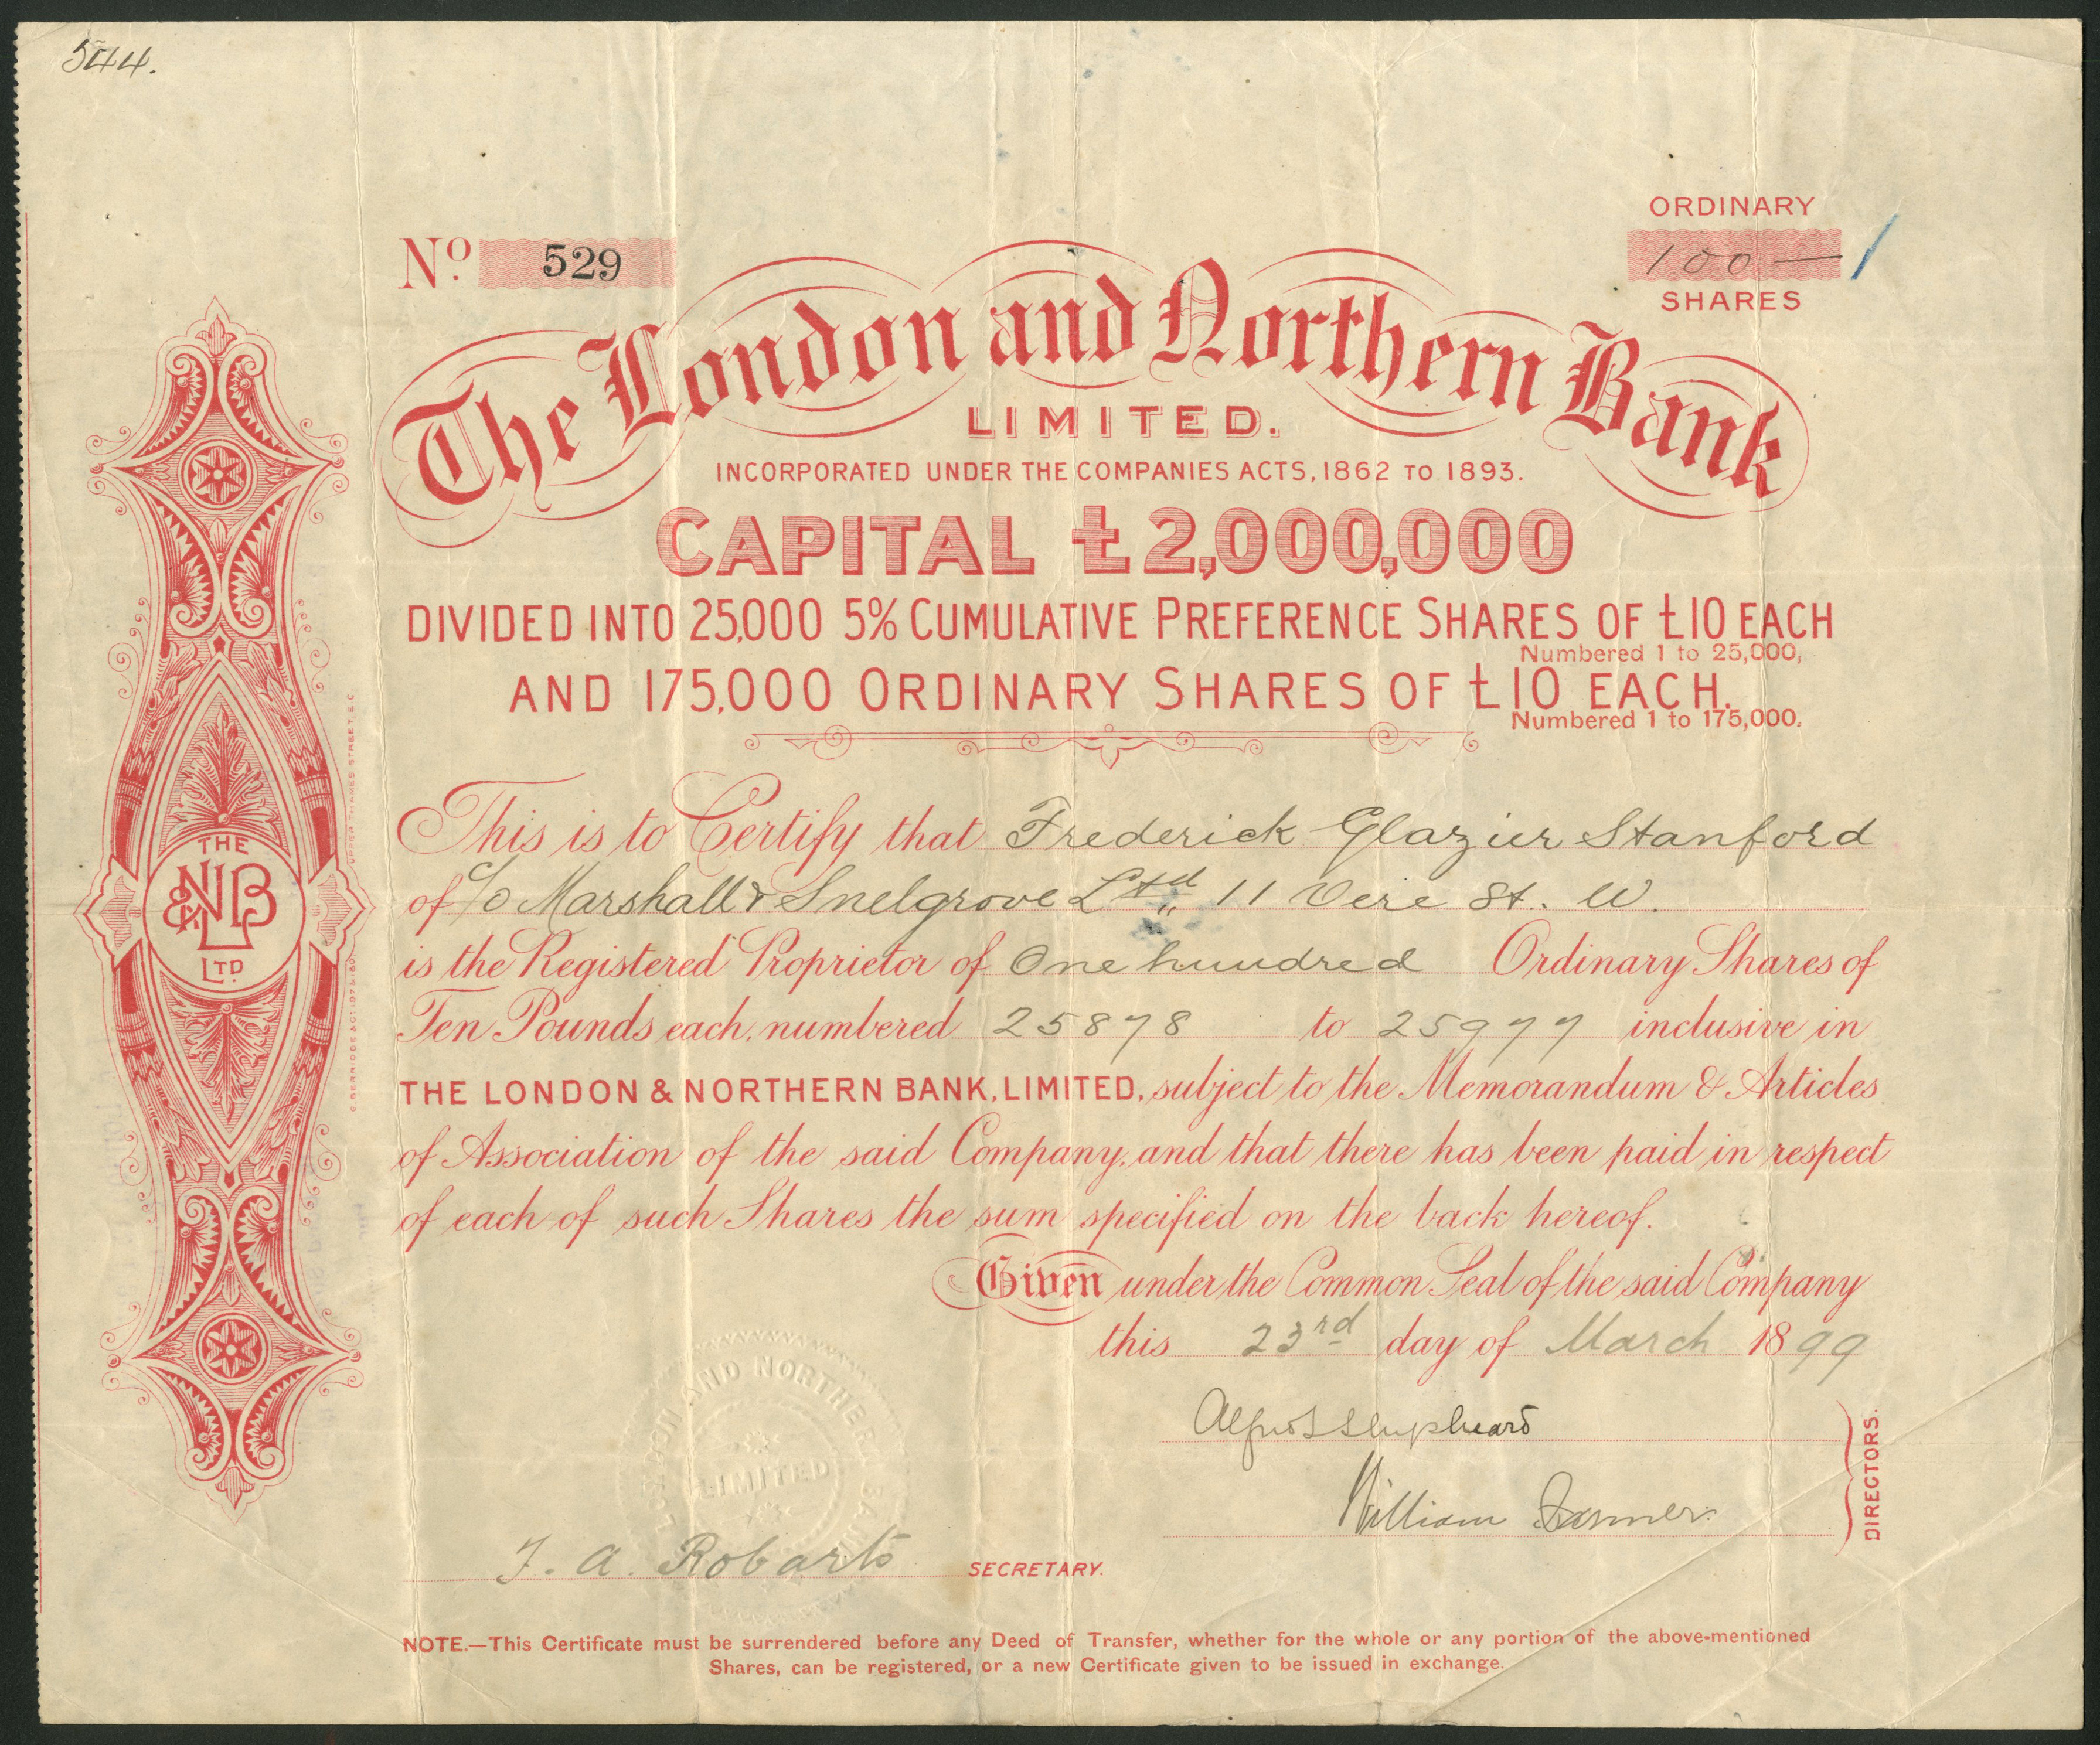 544.
ORDINARY
No. 529
100 — /
SHARES
The London and Northern Bank
LIMITED.
INCORPORATED UNDER THE COMPANIES ACTS, 1862 TO 1893.
CAPITAL £2,000,000
DIVIDED INTO 25,000 5% CUMULATIVE PREFERENCE SHARES OF £10 EACH
Numbered 1 to 25,000,
AND 175,000 ORDINARY SHARES OF £10 EACH.
Numbered 1 to 175,000.
This is to Certify that Frederick Glazier Stanford
of c/o Marshall & Snelgrove Ltd 11 Vere St. W.
is the Registered Proprietor of One hundred Ordinary Shares of
Ten Pounds each, numbered 25878 to 25977 inclusive in
THE LONDON & NORTHERN BANK, LIMITED, subject to the Memorandum & Articles
of Association of the said Company, and that there has been paid in respect
of each of such Shares the sum specified on the back hereof.
Given under the Common Seal of the said Company
this 23rd day of March 1899
Alfred Shepheard
William Farmer
DIRECTORS.
F. A. Robarts SECRETARY.
LONDON AND NORTHERN BANK
LIMITED
NOTE.—This Certificate must be surrendered before any Deed of Transfer, whether for the whole or any portion of the above-mentioned
Shares, can be registered, or a new Certificate given to be issued in exchange.
THE
L&NB
LTD.
UPPER THAMES STREET, E.C.